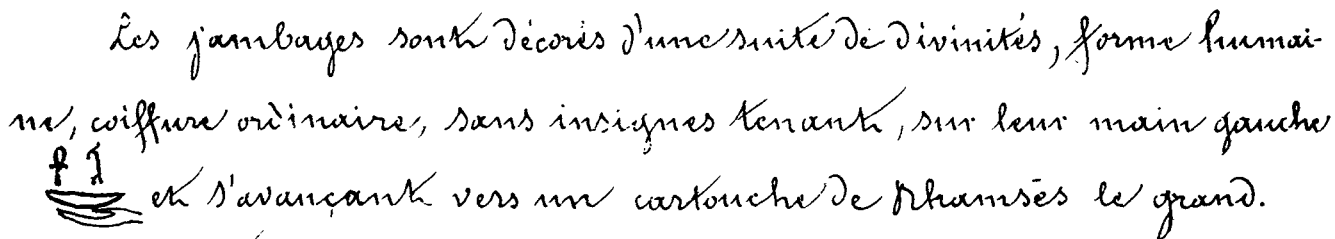 Les jambages sont décorés d'une suite de divinités, forme humai-
ne, coiffure ordinaire, sans insignes tenant, sur leur main gauche
et s'avançant vers un cartouche de Rhamsès le grand.